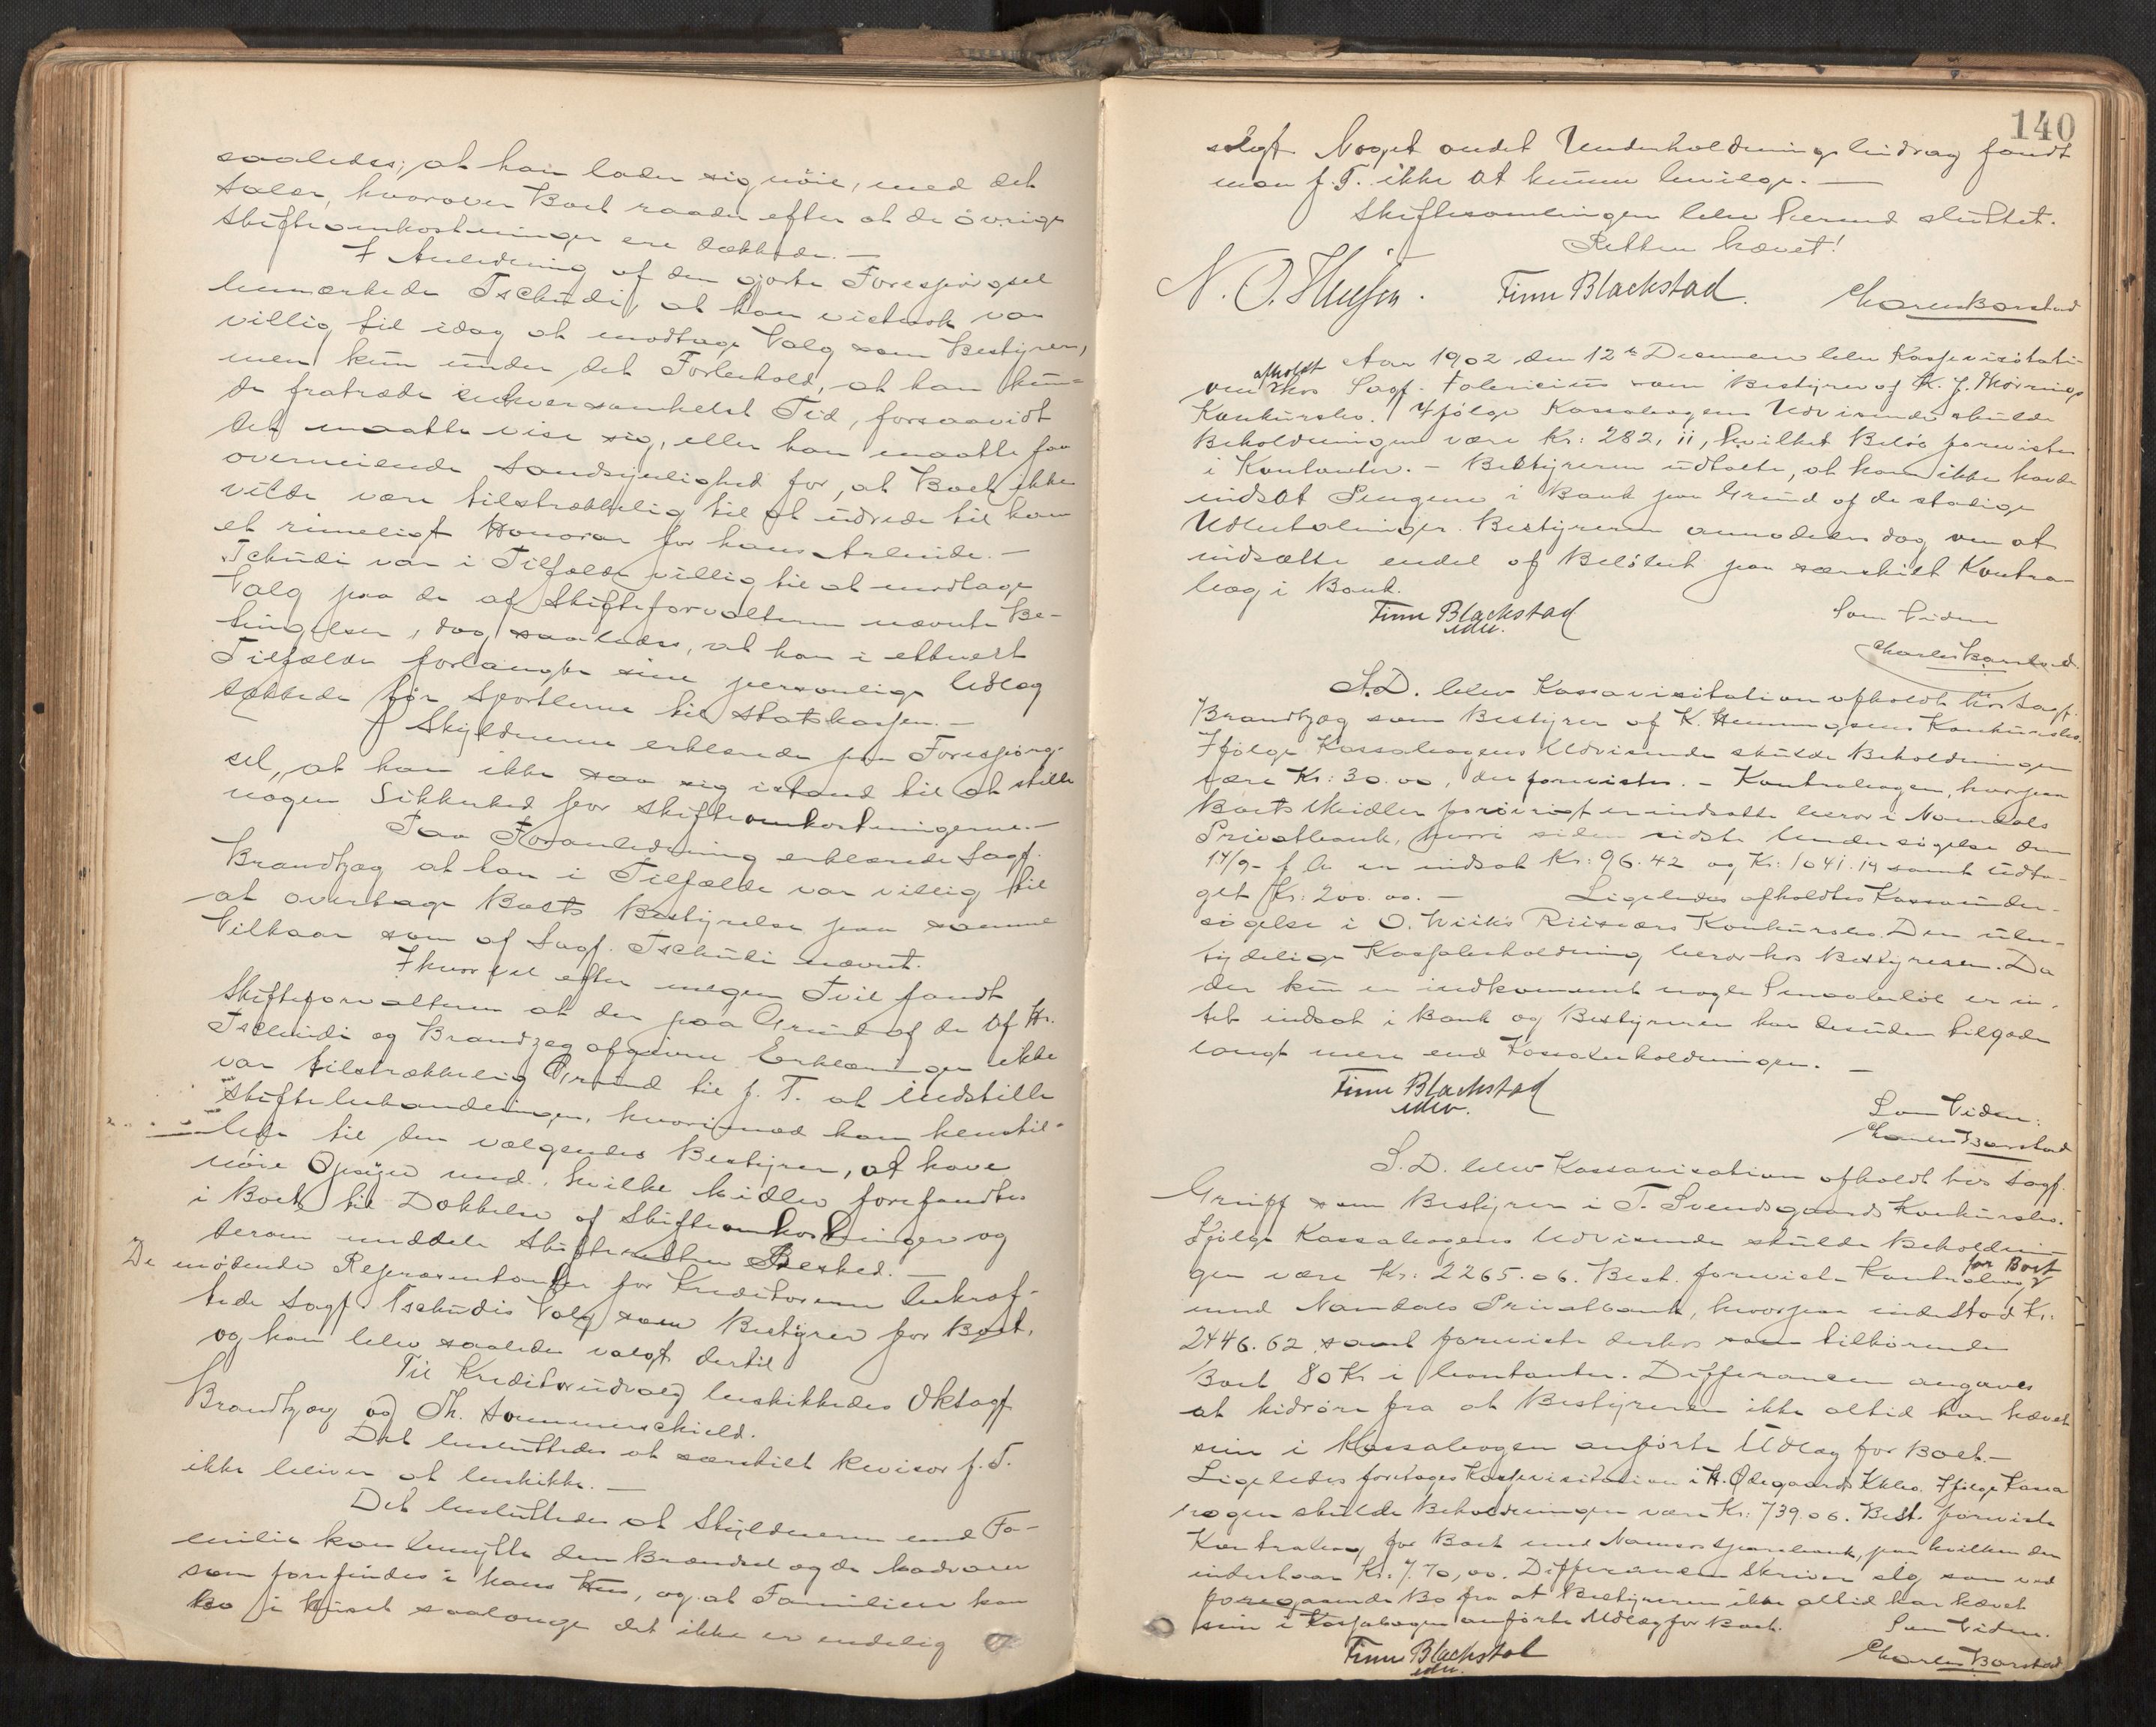 saaledes, at han lader sig nöie, med det
Saldo, hvorover Boet raader efter at de övrige
Skifteomkostninger ere dækkede. —
I Anledning af den gjorte Forespörgsel
bemærkede Tschudi, at han vistnok var
villig til idag at modtage Valg som Bestyrer,
men kun under det Forbehold, at han kun-
de fratræde enhversomhelst Tid, forsaavidt
det maatte vise sig, eller han maatte faa
overveiende Sandsynlighed for, at Boet ikke
vilde være tilstrækkelig til at udrede til ham
et rimeligt Honorar for hans Arbeide. —
Tschudi var i Tilfælde villig til at modtage
Valg paa de af Skifteforvalteren nævnte Be-
tingelser, dog saaledes, at han i ethvert
Tilfælde forlangte sine personlige Udlæg
dækkede för Sportlerne til Statskassen. —
Skyldneren erklærede paa Forespörg-
sel, at han ikke saa sig istand til at stille
nogen Sikkerhed for Skifteomkostningerne. —
Paa Foranledning erklærede Sagf.
Brandtzæg at han i Tilfælde var villig til
at overtage Boets Bestyrelse paa samme
Vilkaar som af Sagf. Tschudi nævnt.
Ihvorvel efter megen Tvil fandt
Skifteforvalteren at der paa Grund af de af Hr.
Tschudi og Brandtzæg afgivne Erklæringer ikke
var tilstrækkelig Grund til f. T. at indstille
Skiftebehandlingen, hvorimod han henstil-
lede til den vælgendes Bestyrer, at have
nöie Opsyn med, hvilke Midler forefandtes
i Boet til Dækkelse af Skifteomkostninger og
derom meddele Skifteretten Besked. —
De mödende Repræsentanter for Kreditorerne bekræf-
tede Sagf. Tschudis Valg som Bestyrer for Boet,
og han blev saaledes valgt dertil
Til Kreditorudvalg beskikkedes Oktsagf
Brandtzæg og Th. Sommerschield.
Det besluttedes at særskilt Revisor f. T.
ikke bliver at beskikke. —
Det besluttedes at Skyldneren med Fa-
milie kan benytte den Brændsel og de Madvarer
som forefindes i hans Hus, og at Familien kan
bo i Huset saalænge det ikke er endelig
140
solgt. Noget andet Underholdningsbidrag fandt
man f. T. ikke at kunne bevilge. —
Skiftesamlingen blev hermed sluttet.
Retten hævet!
Finn Blackstad. Charles Borstad
Aar 1902 den 12te December blev Kassevisitati-
on afholdt hos Sagf. Fabricius som Bestyrer af K. J. Thörrings
Konkursbo. Ifölge Kassabogens Udvisende skulde
Beholdningen være Kr: 282,11, hvilket Belöb forevistes
i Kontanter. — Bestyreren udtalte, at han ikke havde
indsat Pengene i Bank paa Grund af de stadige
Udbetalinger. Bestyreren anmodedes dog om at
indsætte endel af Belöbet paa særskilt Kontra-
bog i Bank.
Finn Blackstad Som Vidne
edv. Charles Borstad.
S.D. blev Kassavisitation afholdt hos Sagf.
Brandtzæg som Bestyrer af K. Hemmingsens Konkursbo.
Ifölge Kassabogens Udvisende skulde Beholdningen
være Kr: 30.00, der forevistes. — Kontrabogen, hvorpaa
Boets Midler forövrigt er indsatte beror i Namdals
Privatbank, hvori siden sidste Undersögelse den
17/9 f. A. er indsat Kr: 96.42 og Kr: 1041.14 samt udta-
get Kr: 200.00. — Ligeledes afholdtes Kassaunder-
sögelse i O. Wiiks Riisnæs Konkursbo. Den ube-
tydelige Kassabeholdning beror hos Bestyreren. Da
der kun er indkommet nogle Smaabelöb er in-
tet indsat i Bank og Bestyreren har desuden tilgode
langt mere end Kassabeholdningen. —
Finn Blackstad
edv. Som Vidne:
Charles Borstad
S.D. blev Kassavisitation afholdt hos Sagf.
Gruff som Bestyrer i T. Svendsgaards Konkursbo.
Ifölge Kassabogens Udvisende skulde Beholdnin-
gen være Kr: 2265.06. Best. foreviste Kontrabog for Boet
med Namdals Privatbank, hvorpaa indestod Kr.
2446.62 samt foreviste derhos som tilhörende
Boet 80 Kr i Contanter. Differancen angaves
at hidröre fra at Bestyreren ikke altid har hævet
sine i Kassabogen anförte Udlæg for Boet. —
Ligeledes foretages Kassevisitation i H. Ödegaards Kkbo. Ifölge Kassa
bogen skulde Beholdningen være Kr: 739.06. Best. foreviste
Kontrabog for Boet med Namsos Sparebank, paa hvilken der
indestaar Kr: 770,00. Differancen skriver sig som ved
foregaaende Bo fra at Bestyreren ikke altid har hævet
sine i Kassabogen anförte Udlæg for Boet. Som Vidne.
Finn Blackstad Charles Borstad
edv.